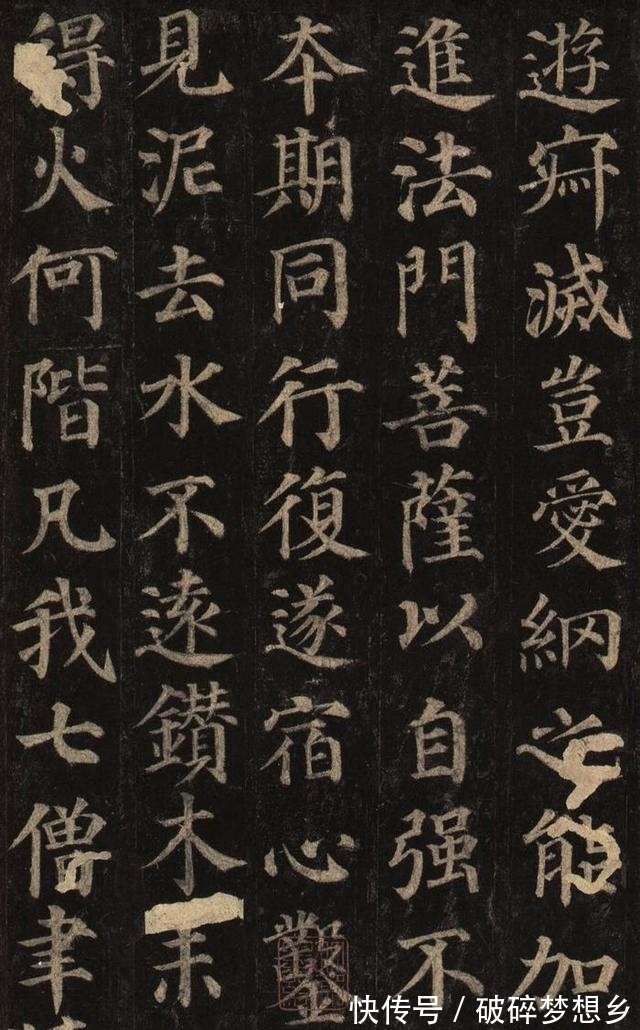 遊寂滅豈愛網之能加
進法門菩薩以自强不
本期同行復遂宿心鑿
見泥去水不遠鑽木未
得火何階凡我七僧聿
快传号 / 破碎梦想乡